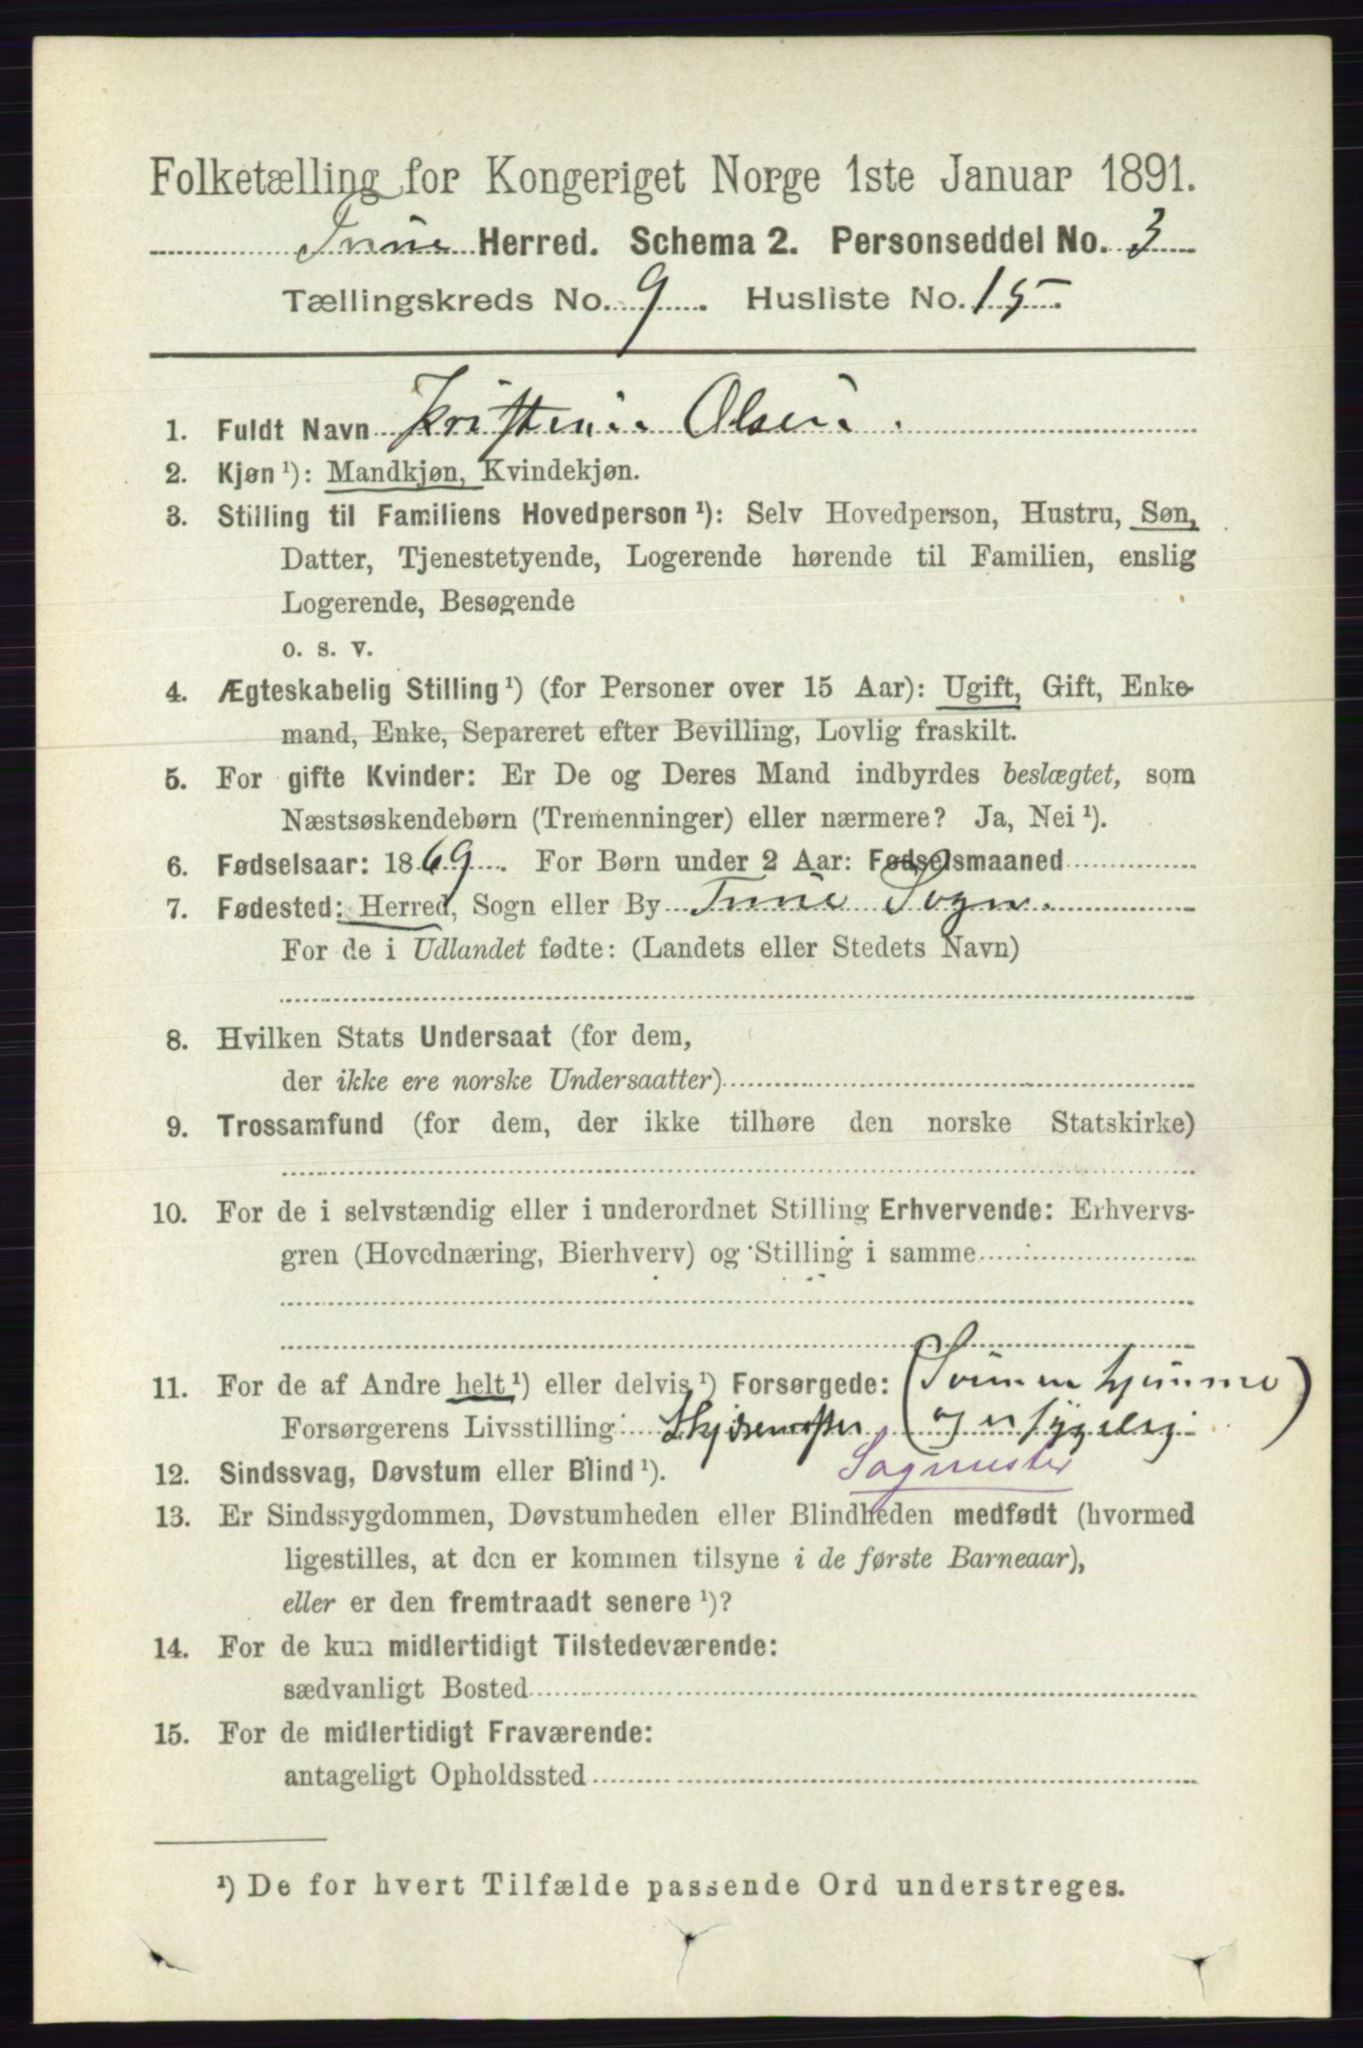 Folketælling for Kongeriget Norge 1ste Januar 1891.
Tune Herred. Schema 2. Personseddel No. 3
Tællingskreds No. 9. Husliste No. 15.
1. Fuldt Navn Olsen.
2. Kjøn¹): Mandkjøn, Kvindekjøn.
3. Stilling til Familiens Hovedperson¹): Selv Hovedperson, Hustru, Søn,
Datter, Tjenestetyende, Logerende hørende til Familien, enslig
Logerende, Besøgende
o. s. v.
4. Ægteskabelig Stilling¹) (for Personer over 15 Aar): Ugift, Gift, Enke-
mand, Enke, Separeret efter Bevilling, Lovlig fraskilt.
5. For gifte Kvinder: Er De og Deres Mand indbyrdes beslægtet, som
Næstsøskendebørn (Tremenninger) eller nærmere? Ja, Nei¹).
6. Fødselsaar: 1869. For Børn under 2 Aar: Fødselsmaaned
7. Fødested: Herred, Sogn eller By Tune Sogn.
For de i Udlandet fødte: (Landets eller Stedets Navn)
8. Hvilken Stats Undersaat (for dem,
der ikke ere norske Undersaatter)
9. Trossamfund (for dem, der ikke tilhøre den norske Statskirke)
10. For de i selvstændig eller i underordnet Stilling Erhvervende: Erhvervs-
gren (Hovednæring, Bierhverv) og Stilling i samme
11. For de af Andre helt¹) eller delvis¹) Forsørgede: (Sønnen hjemme
Forsørgerens Livsstilling og er sygelig)
12. Sindssvag, Døvstum eller Blind¹). Sagmester
13. Er Sindssygdommen, Døvstumheden eller Blindheden medfødt (hvormed
ligestilles, at den er kommen tilsyne i de første Barneaar),
eller er den fremtraadt senere¹)?
14. For de kun midlertidigt Tilstedeværende:
sædvanligt Bosted
15. For de midlertidigt Fraværende:
antageligt Opholdssted
¹) De for hvert Tilfælde passende Ord understreges.